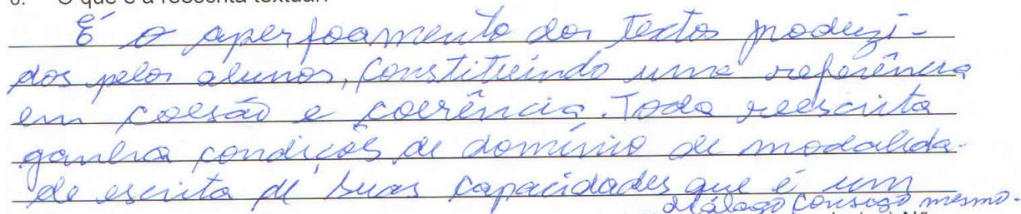 É o aperfoamento dos textos produzi-
dos pelos alunos, constituindo uma referência
em coesão e coerência. Toda reescrita
ganha condições de domínio de modalida-
de escrita de suas capacidades que é um
diálogo consigo mesmo.